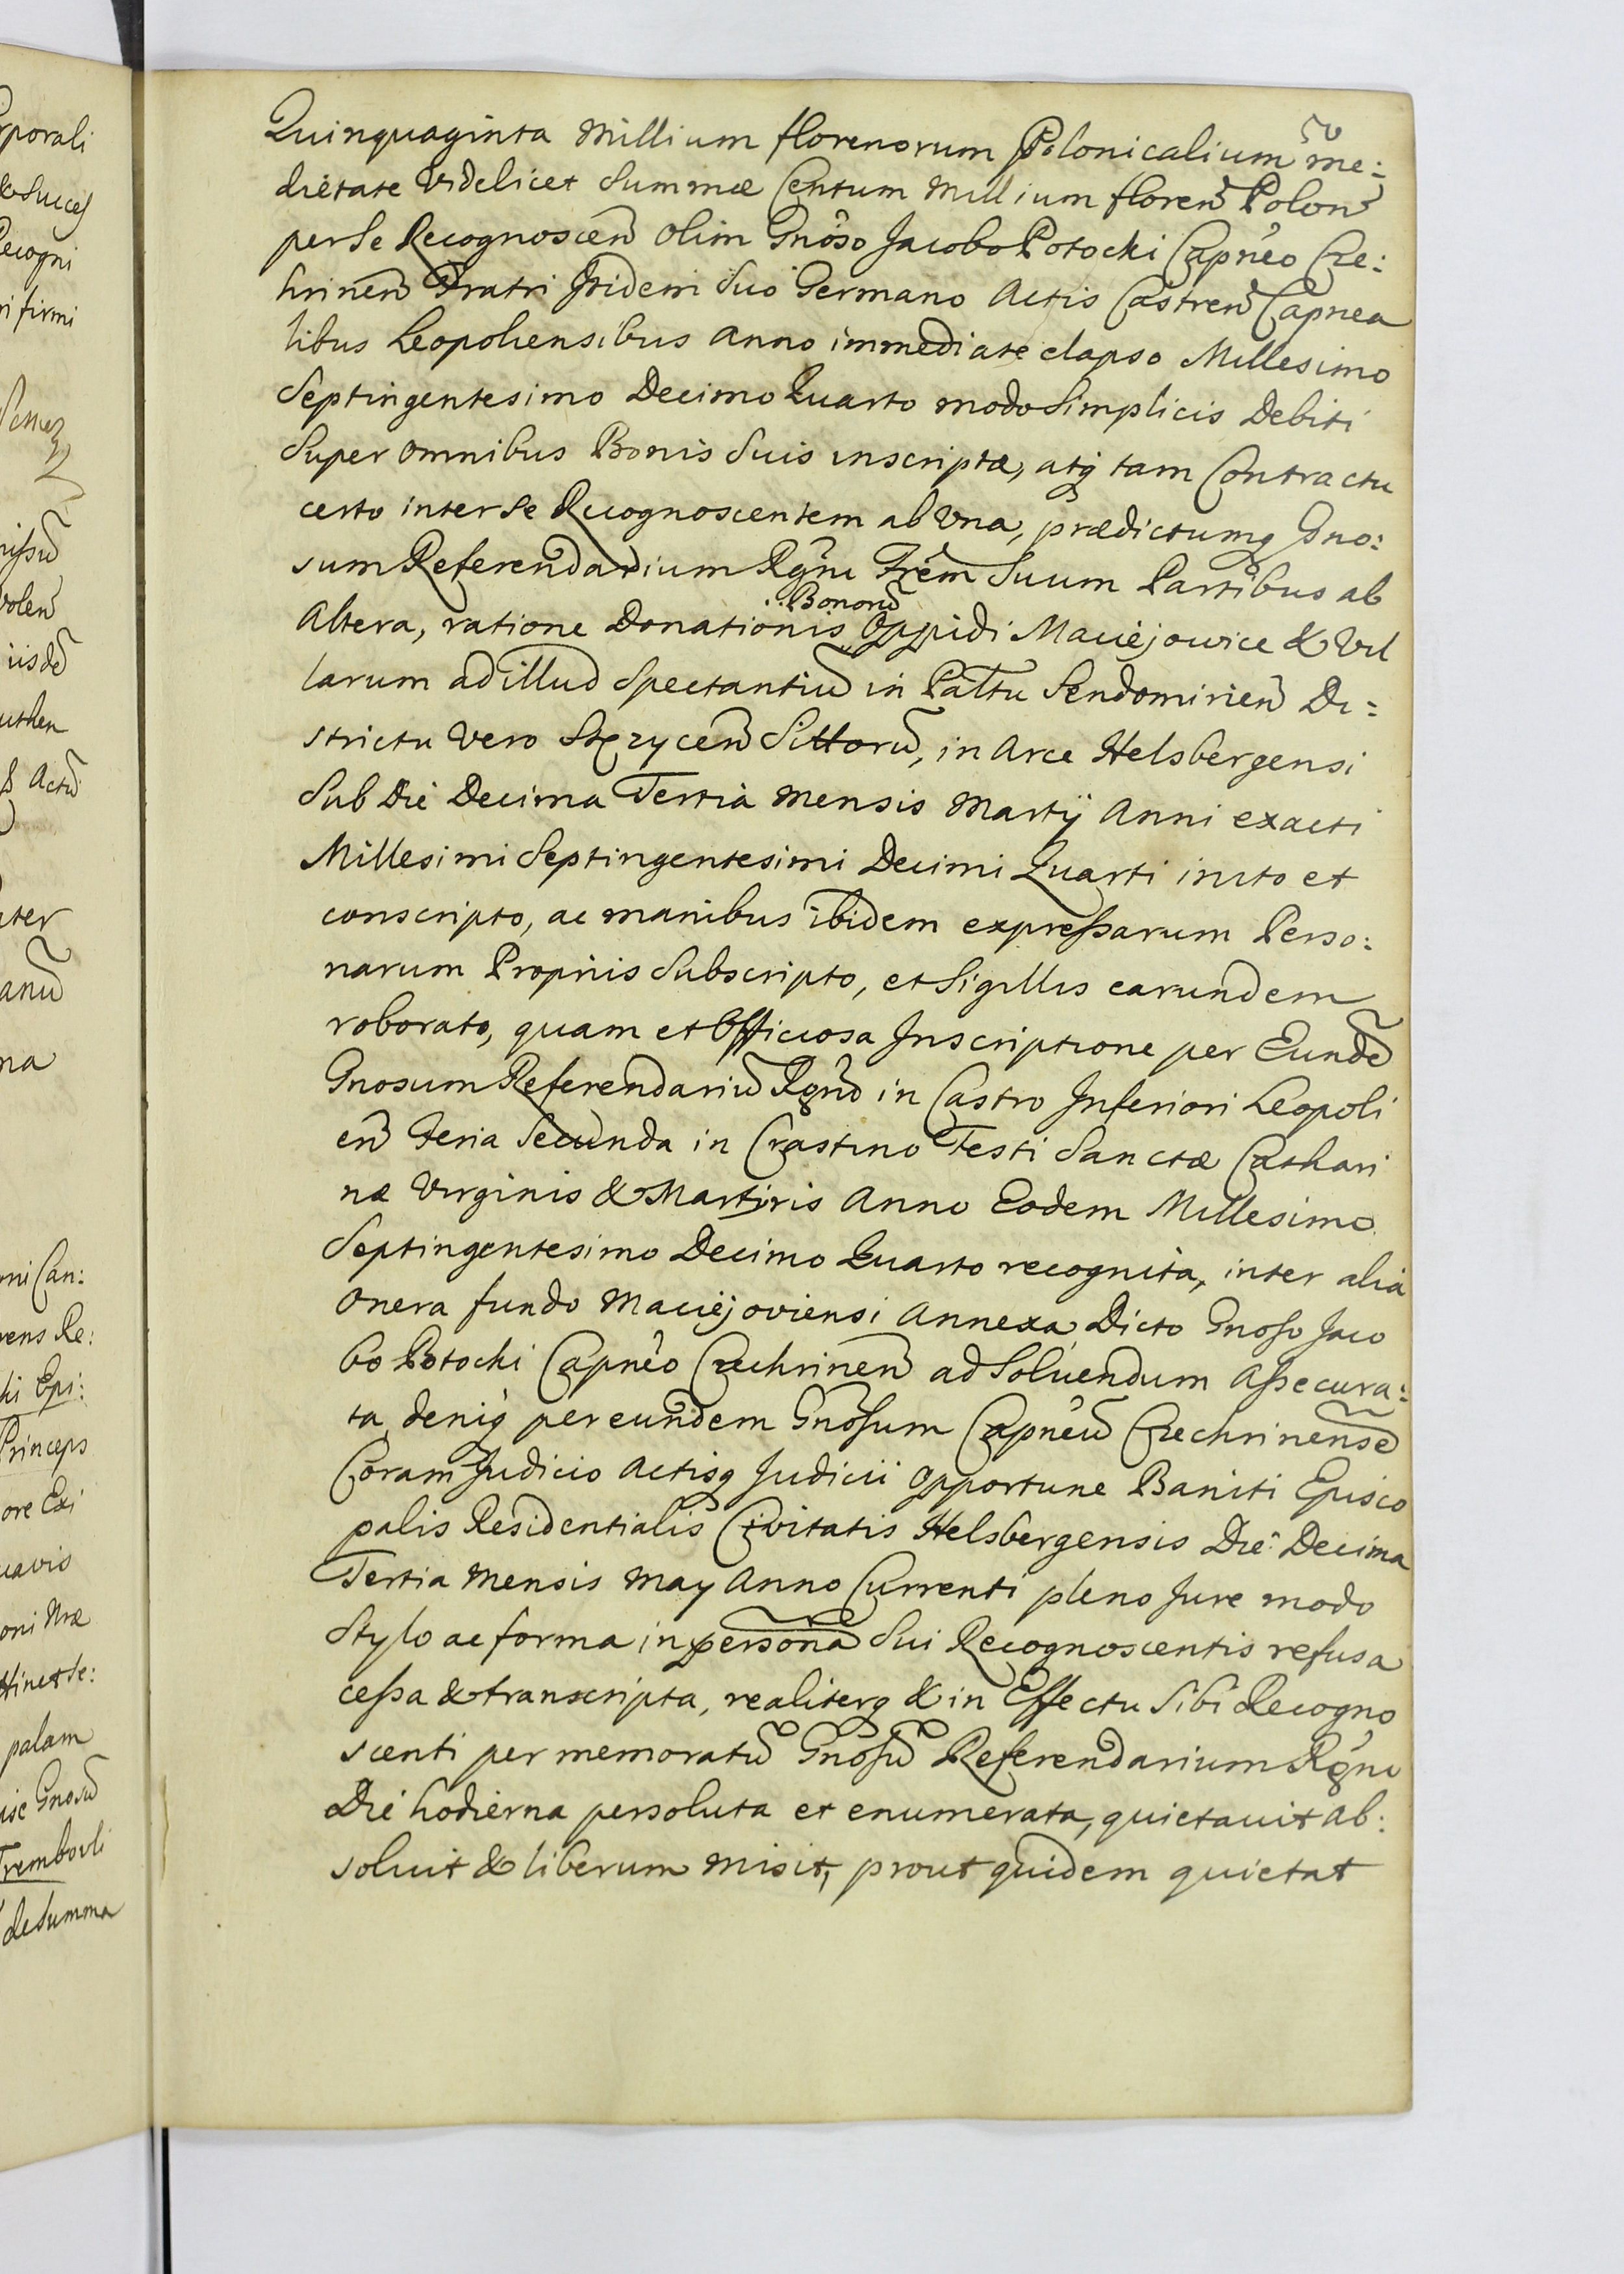 Quinquaginta Millium florenorum Polonicalium me:
dietate Videlicet Summæ Centum Millium floreñ Poloñ
per Se Recognosceñ olim Gnôso Jacobo Potocki Capnêo Cze:
hrineñ Fratri Itidem Suo Germano Actis Castreñ Capnea
libus Leopoliensibus Anno immediate elapso Millesimo
Septingentesimo Decimo Quarto modo Simplicis Debiti
Super omnibus Bonis Suis inscriptæ, atq tam Contractu
certo inter Se Recognoscentem ab Una, prædictumq Gno:
sum Referendarium Rgñi Frêm Suum Partibus ab
Altera, ratione Donationis Bonorũ Oppidi Maciejowice & Vil
larum ad illud Spectantiũ in Pałtu Sendomirieñ Di=
strictu Vero Stęzyceñ Sittorũ, in Arce Helsbergensi
Sub Die Decima Tertia Mensis Martij Anni exacti
Millesimi Septingentesimi Decimi Quarti inito et
conscripto, ac manibus ibidem expressarum Perso:
narum Proprijs Subscripto, et Sigillis earundem
roborato, quam et Officiosa Inscriptione per Eundẽ
Gnosum Referendariũ Rgñi in Castro Inferiori Leopoli
eñ Feria Secunda in Crastino Festi Sanctæ Cathari
næ Virginis & Martiris Anno Eodem Millesimo
Septingentesimo Decimo Quarto recognita, inter alia
Onera fundo Maciejoviensi Annexa, Dicto Gnoso Jaco
bo Potocki Capnêo Czechrineñ ad Solvendum Assecura:
ta, deniq per eundem Gnôsum Capnêũ Czechrinensẽ
Coram Judicio Actisq Judicii opportune Baniti Episco
palis Residentialis Civitatis Helsbergensis Die Decima
Tertia Mensis May Anno Currenti pleno Jure modo
Stylo ac forma in persona Sui Recognoscentis refusa
cessa & transcripta, realiterq & in Effectu Sibi Recogno
scenti per memoratũ Gnosũ Referendarium Rgñi
Die hodierna persoluta et enumerata, quietavit Ab:
solvit & liberum misit, prout quidem quietat